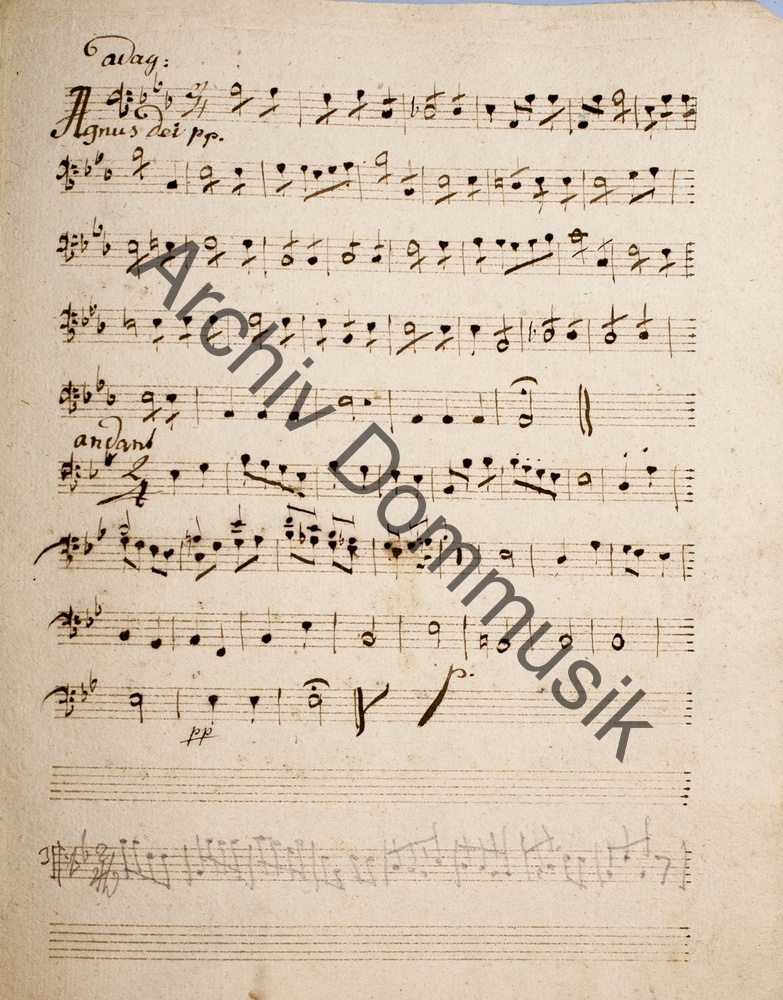 adag:
Agnus dei pp.
andant
2/4
pp
p.
Archiv Dommusik